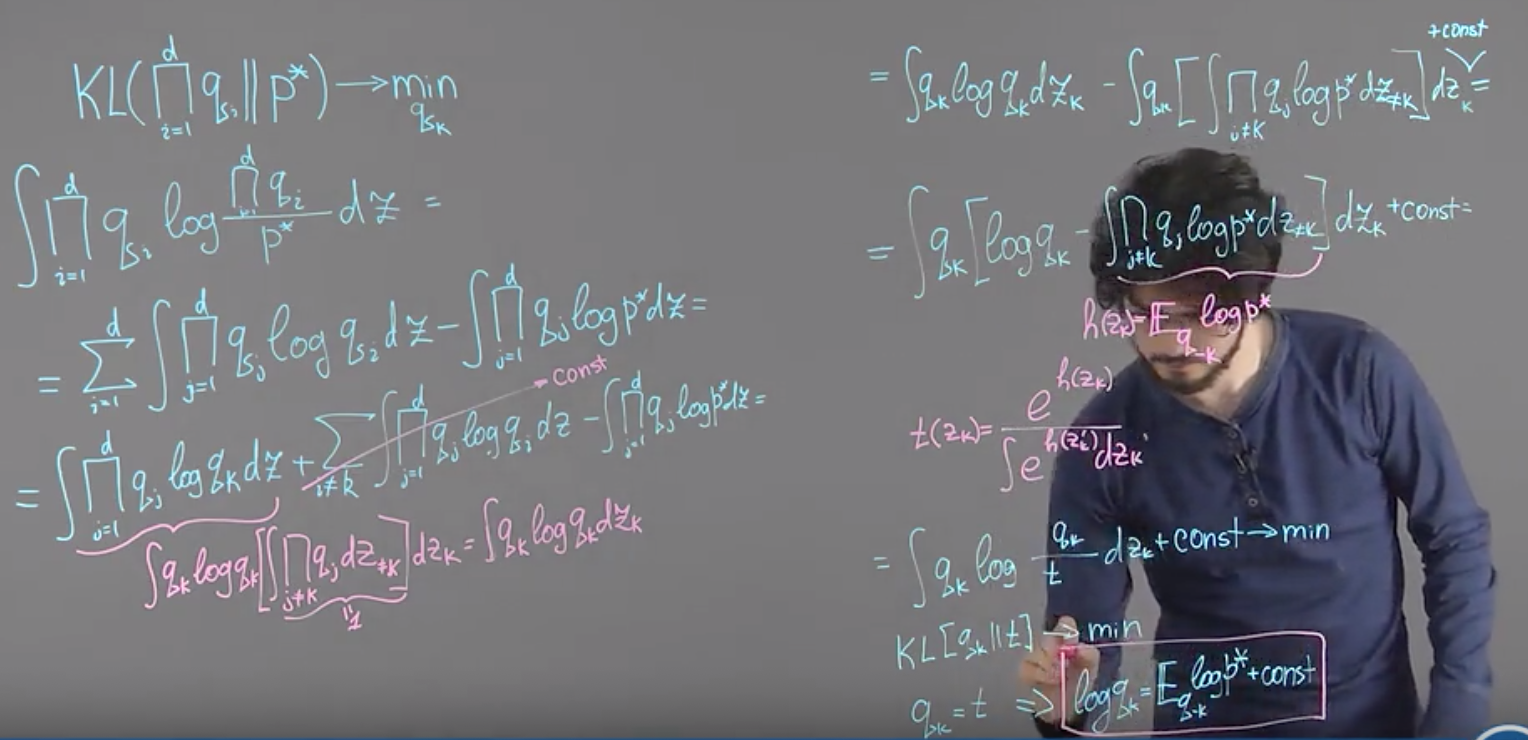 KL(∏_{i=1}^{d} q_i || p*) → min_{q_k}
∫ ∏_{i=1}^{d} q_i log (∏_{i=1}^{d} q_i / p*) dz =
= ∑_{i=1}^{d} ∫ ∏_{j=1}^{d} q_j log q_i dz − ∫ ∏_{j=1}^{d} q_j log p* dz =
= ∫ ∏_{j=1}^{d} q_j log q_k dz + ∑_{i≠k} ∫ ∏_{j=1}^{d} q_j log q_i dz − ∫ ∏_{j=1}^{d} q_j log p* dz =
const
∫ q_k log q_k [∫ ∏_{j≠k} q_j dz_{≠k}] dz_k = ∫ q_k log q_k dz_k
"1
+const
= ∫ q_k log q_k dz_k − ∫ q_k [∫ ∏_{j≠k} q_j log p* dz_{≠k}] dz_k =
= ∫ q_k [log q_k − ∫ ∏_{j≠k} q_j log p* dz_{≠k}] dz_k + const =
h(z_k) = 𝔼_{q_{-k}} log p*
t(z_k) = e^{h(z_k)} / ∫ e^{h(z_k')} dz_k'
= ∫ q_k log (q_k / t) dz_k + const → min
KL[q_k || t] → min
q_k = t => log q_k = 𝔼_{q_{-k}} log p* + const